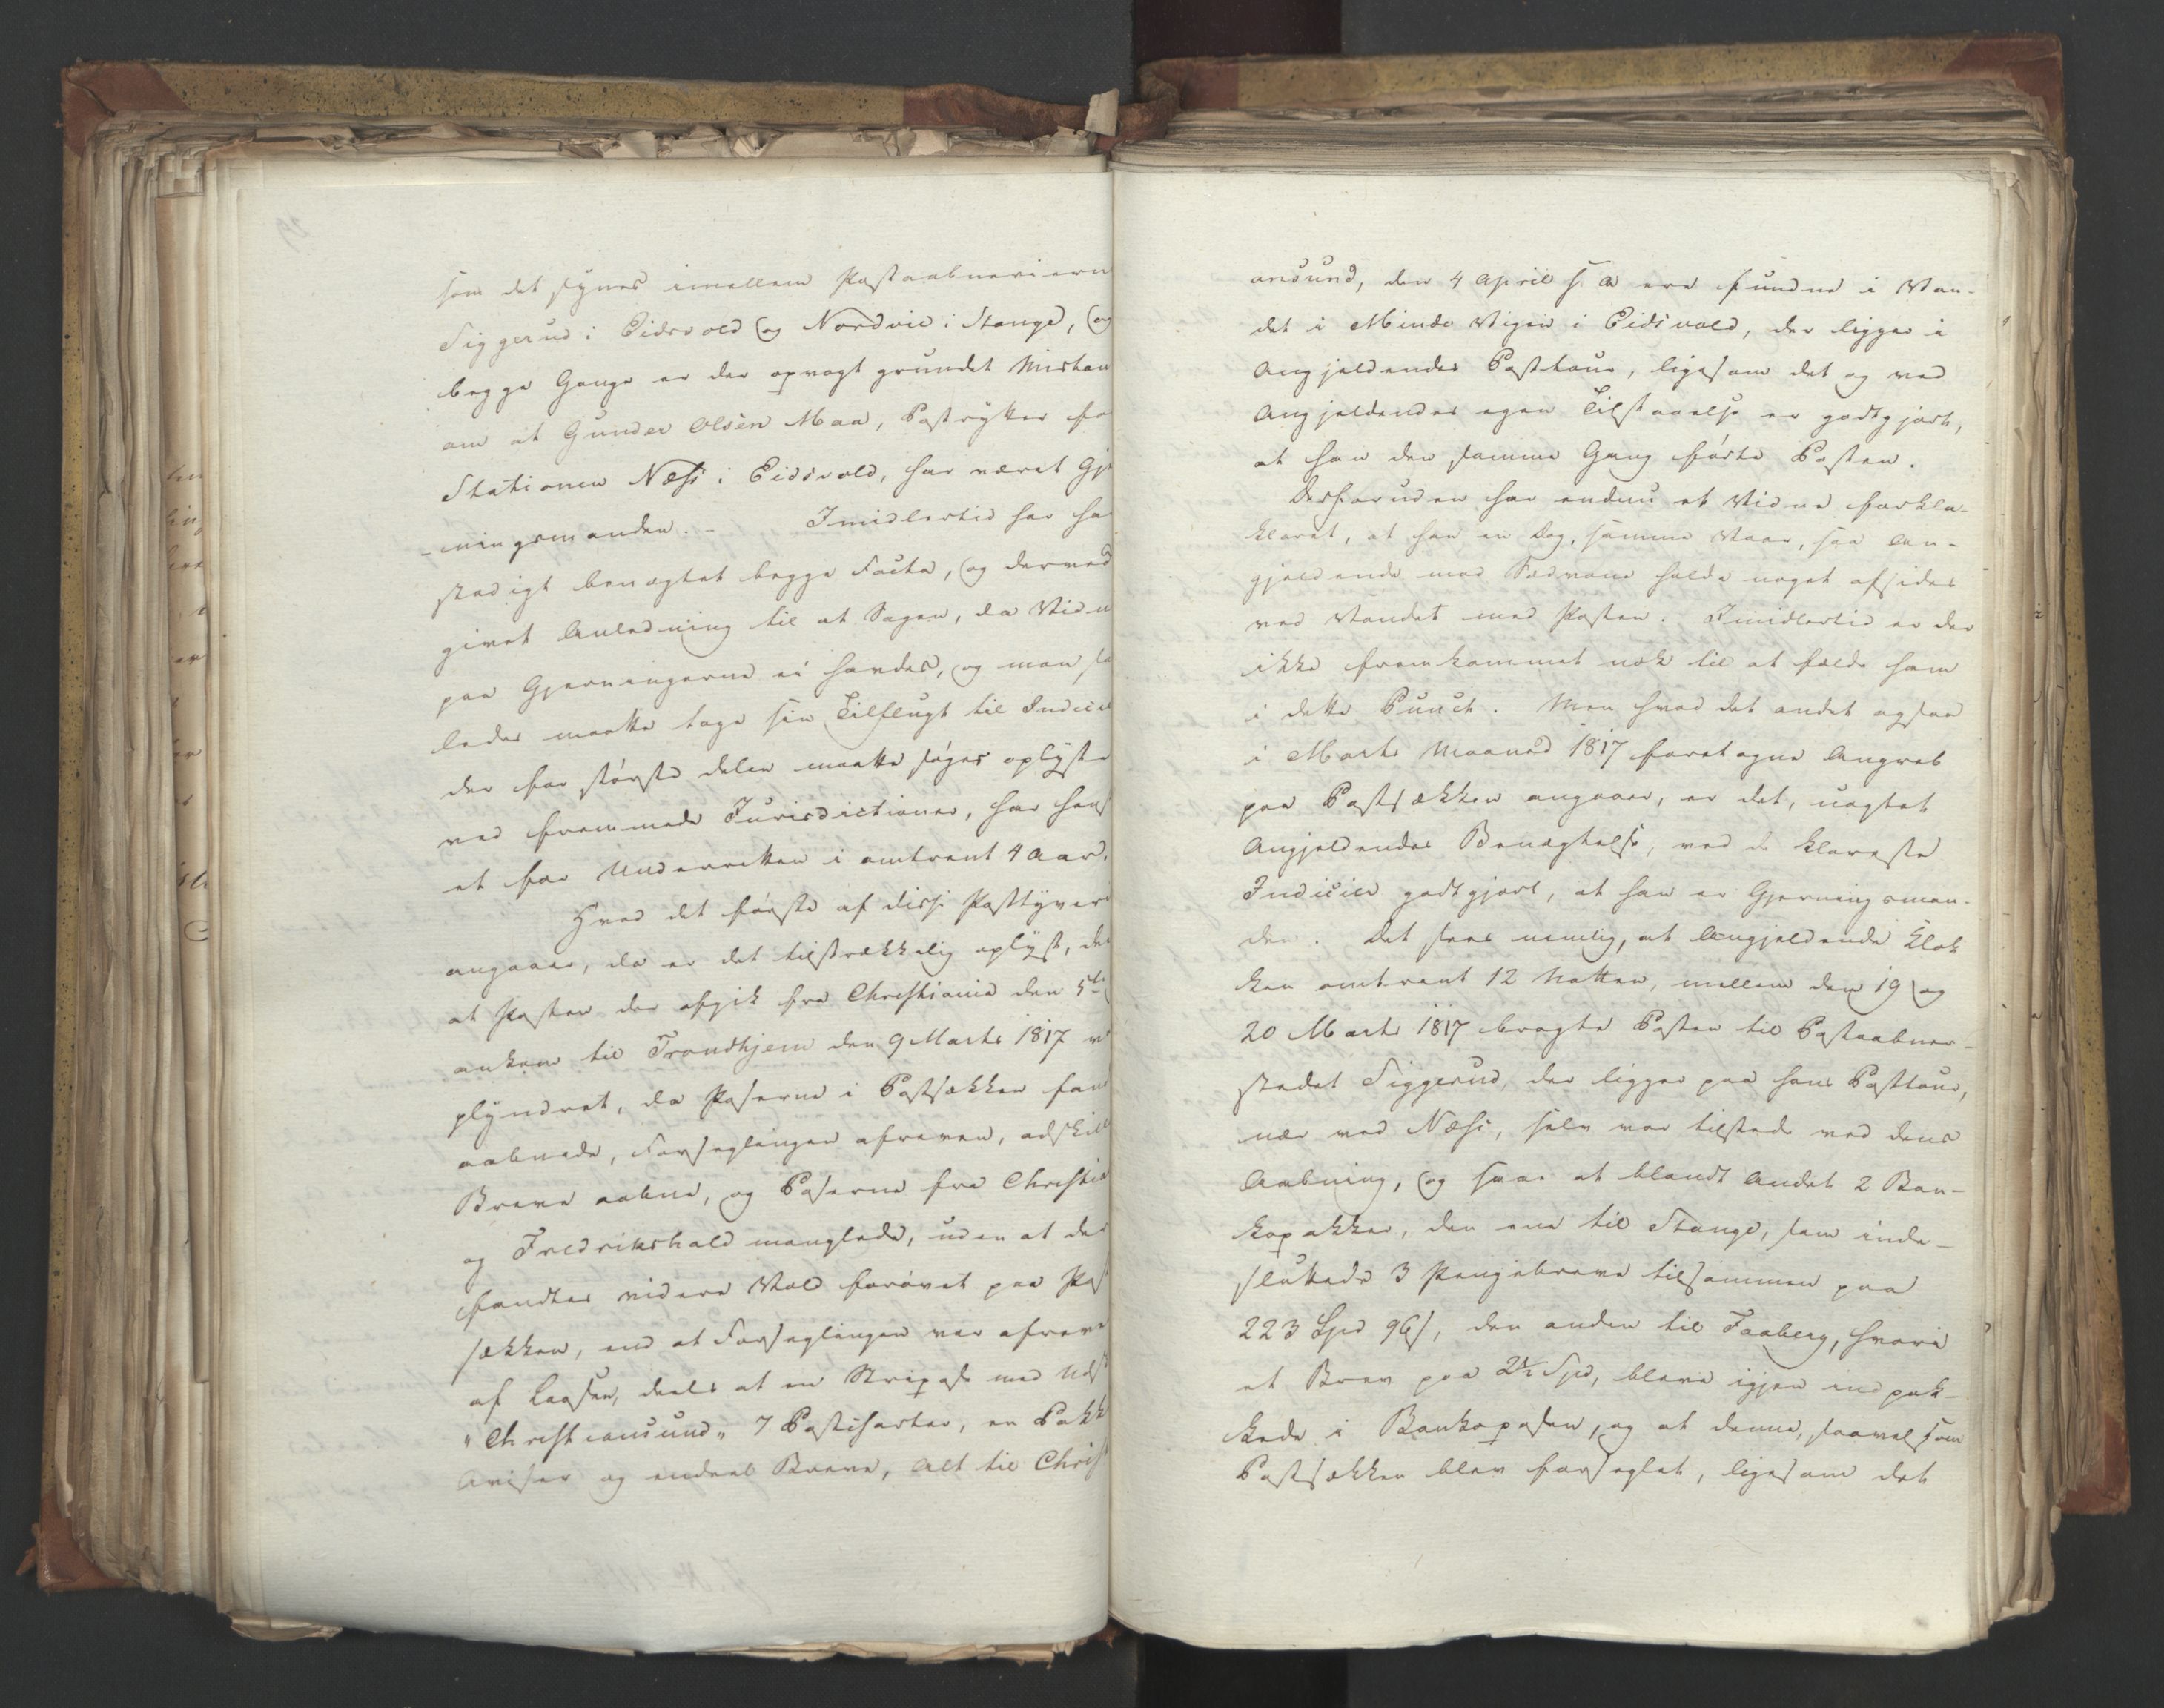 som det synes imellem Postaabnerierne
Siggerud i Eidsvold og Nordvie i Stange, og
begge Gange er der opvagt grundet Mistan
om at Gunder Olsen Maa, Postrytter fo
Stationen Næss i Eidsvold, har været Gje
-ningsmanden. - Imidlertid har ha
stadigt benægtet begge Facta, og derved
givet Anledning til at Sagen, da Vidn
paa Gjerningerne ei havdes, og man sa
ledes maatte tage sin Tilflugt til Indicie
der for største delen maatte søges oplyste
ved fremmede Jurisdictioner, har hens
et for Underretten i omtrent 4 Aar.
Hvad det første af disse Posttyveri
angaaer, da er det tilstrækkelig oplyst, de
at Posten der afgik fra Christiania den 5te
ankom til Trondhjem den 9 Marts 1817
plyndret, da Poserne i Postsækken fan
aabnede, Forseglingen afreven, adskill
Breve aabne, og Poserne fra Christia
og Fredrikshald manglede, uden at der
fandtes videre Vold forøvet paa Pos
sækken, end at Forseglingen var afreve
af Laasen, deels at en Skripose med Uds
"Christiansund" 7 Postcharter, en Pakk
Aviser og endeel Breve, Alt til Christ
ansund, den 4 April s. A ere fundne i Van-
det i Minde Vigen i Eidsvold, der ligger i
Angjeldendes Posttour, ligesom det og ved
Angjeldendes egen Tilstaaelse er godtgjort,
at han den samme Gang førte Posten.
Desforuden har endnu et Vidne forkla-
klaret, at han en Dag, samme Vaar, saa An-
gjeldende mod Sædvane holde noget afsides
ved Vandet med Posten. Imidlertid er der
ikke fremkommet nok til at fælde ham
i dette Punct. Men hvad det andet ogsaa
i Marts Maaned 1817 foretagne Angreb
paa Postsækken angaaer, er det, uagtet
Angjeldendes Benægtelse, ved de klareste
Indicier godtgjort, at han er Gjerningsman-
den. Det sees nemlig, at Angjeldende Klok
ken omtrent 12 Natten, mellem den 19 og
20 Marts 1817 bragte Posten til Postaabner-
stedet Siggerud, der ligger paa hans Posttour,
nær ved Næss, selv var tilstede ved dens
Aabning, og saae at blandt Andet 2 Ban-
kopakker, den ene til Stange, som inde-
sluttede 3 Pengebreve tilsammen paa
223 Spd 96 s, den anden til Faaberg, hvori
et Brev paa 2½ Spd, bleve igjen indpak-
kede i Bankoposen, og at denne, saavelsom
Postsækken blev forseglet, ligesom det